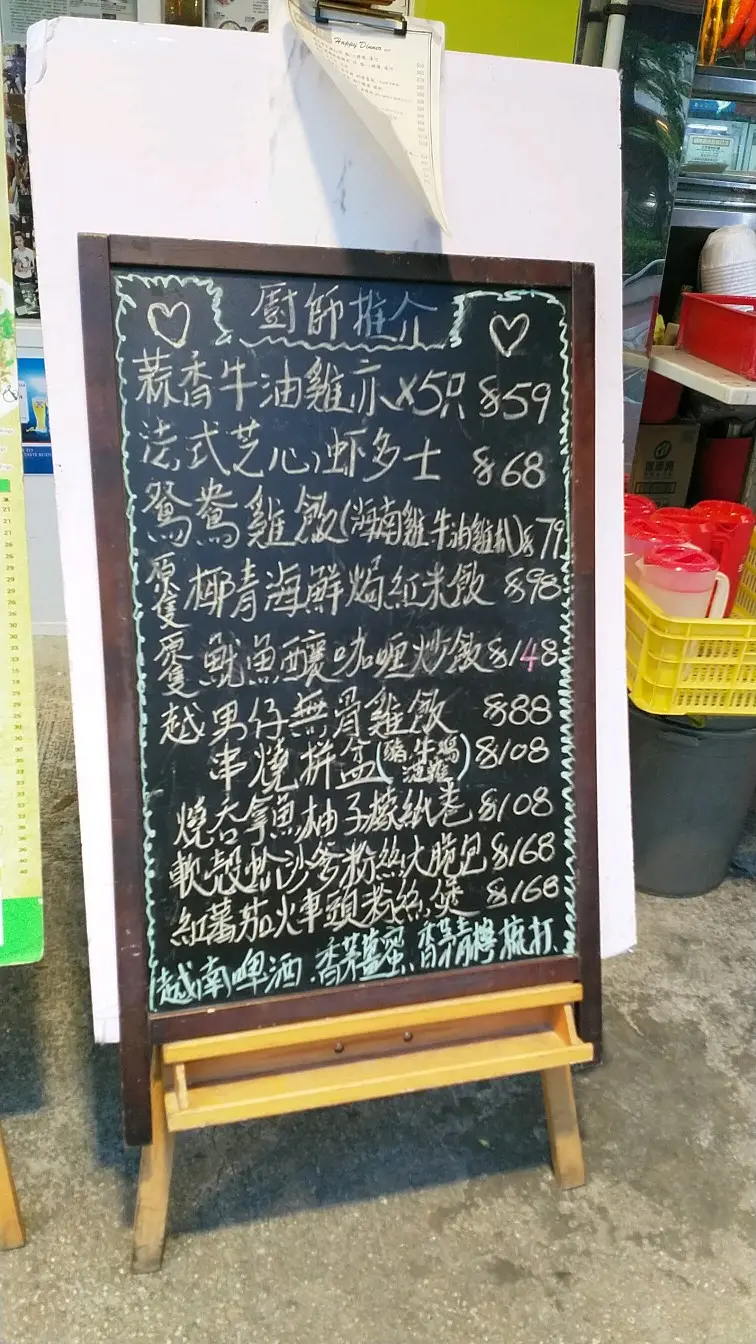 Happy Dinner
廚師推介
蒜香牛油雞亦x5只 $59
法式芝心虾多士 $68
鴛鴦雞飯(海南雞牛油雞扒)$79
原隻椰青海鮮焗紅米飯 $98
原隻魷魚釀咖喱炒飯 $148
越男仔無骨雞飯 $88
串燒拼盆(豬牛腸 雞) $108
燒吞拿魚柚子檬紙卷 $108
軟殼蚧沙爹粉絲大脆包 $168
紅蕃茄火車頭粉絲煲 $168
越南啤酒 香茅薑蜜 香茅青檸梳打